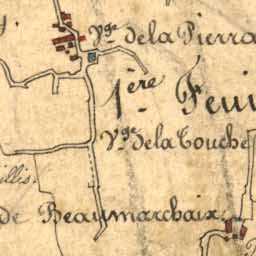 Vge de la Pierra
1ère Feui
Vge de la Touche
illis.
de Beaumarchaix